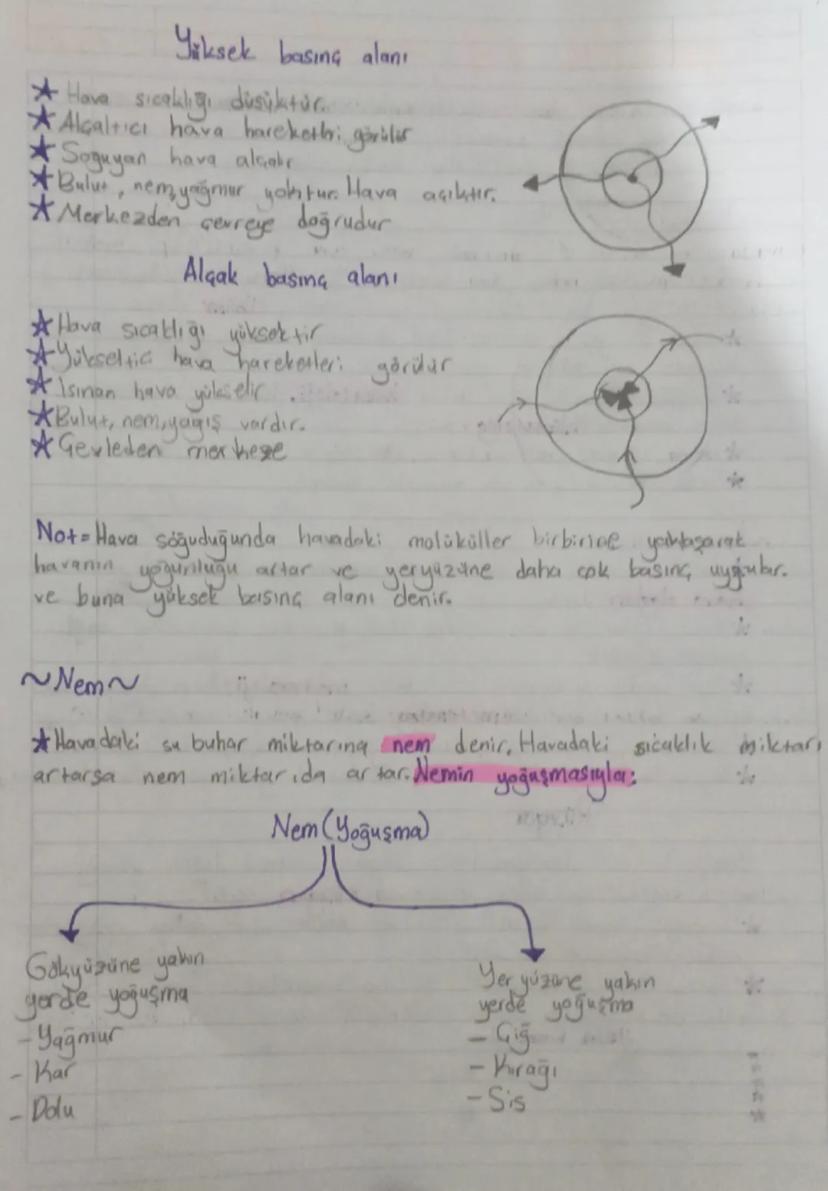 Yüksek basınç alanı
★ Hava sıcaklığı düşüktür.
★ Alçaltıcı hava hareketleri görülür
★ Soğuyan hava alçalır
★ Bulut, nem, yağmur yoktur. Hava açıktır.
★ Merkezden çevreye doğrudur
Alçak basınç alanı
★ Hava sıcaklığı yüksektir
★ Yükseltici hava hareketleri görülür
★ Isınan hava yükselir.
★ Bulut, nem, yağış vardır.
★ Çevleden merkeze
Not= Hava söğuduğunda havadaki moliküller birbirine yaklaşarak
havanın yoğunluğu artar ve yeryüzüne daha çok basınç uygular.
ve buna yüksek basınç alanı denir.
~Nem~
★ Havadaki su buhar miktarına nem denir. Havadaki sıcaklık miktarı
artarsa nem miktarıda artar. Nemin yoğuşmasıyla:
Nem (Yoğuşma)
Gökyüzüne yakın
yerde yoğuşma
- Yağmur
- Kar
- Dolu
Yer yüzüne yakın
yerde yoğuşma
- Çiğ
- Kırağı
- Sis